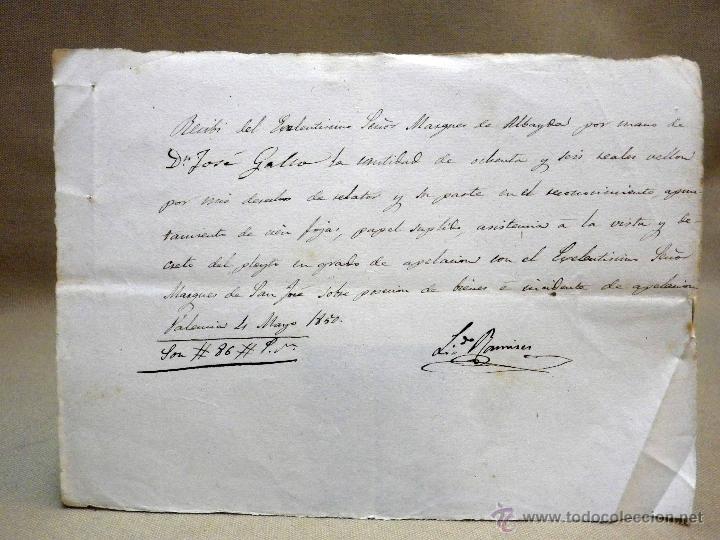 Recibi del Exelentissimo Señor Marques de Albayda por mano de
Dn. José Galvo la cantidad de ochenta y seis reales vellon
por mis derechos de relator y su parte en el reconocimiento, apun
tamiento de cien fojas, papel suplido, asistencia à la vista y de
creto del pleyto en grado de apelacion con el Exelentissimo Señor
Marques de San José sobre posecion de bienes è incidente de apelacion
Valencia 4 Mayo 1850.
Son # 86 #
L.do Ramires
www.todocoleccion.net